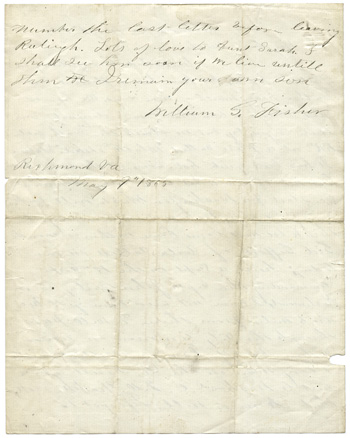 number the last letter before leaving
Raleigh. Lots of love to Aunt Sarah I
shall see her soon if we live untill
then I remain your own Son
William G. Fisher
Richmond Va
May 9th 1865